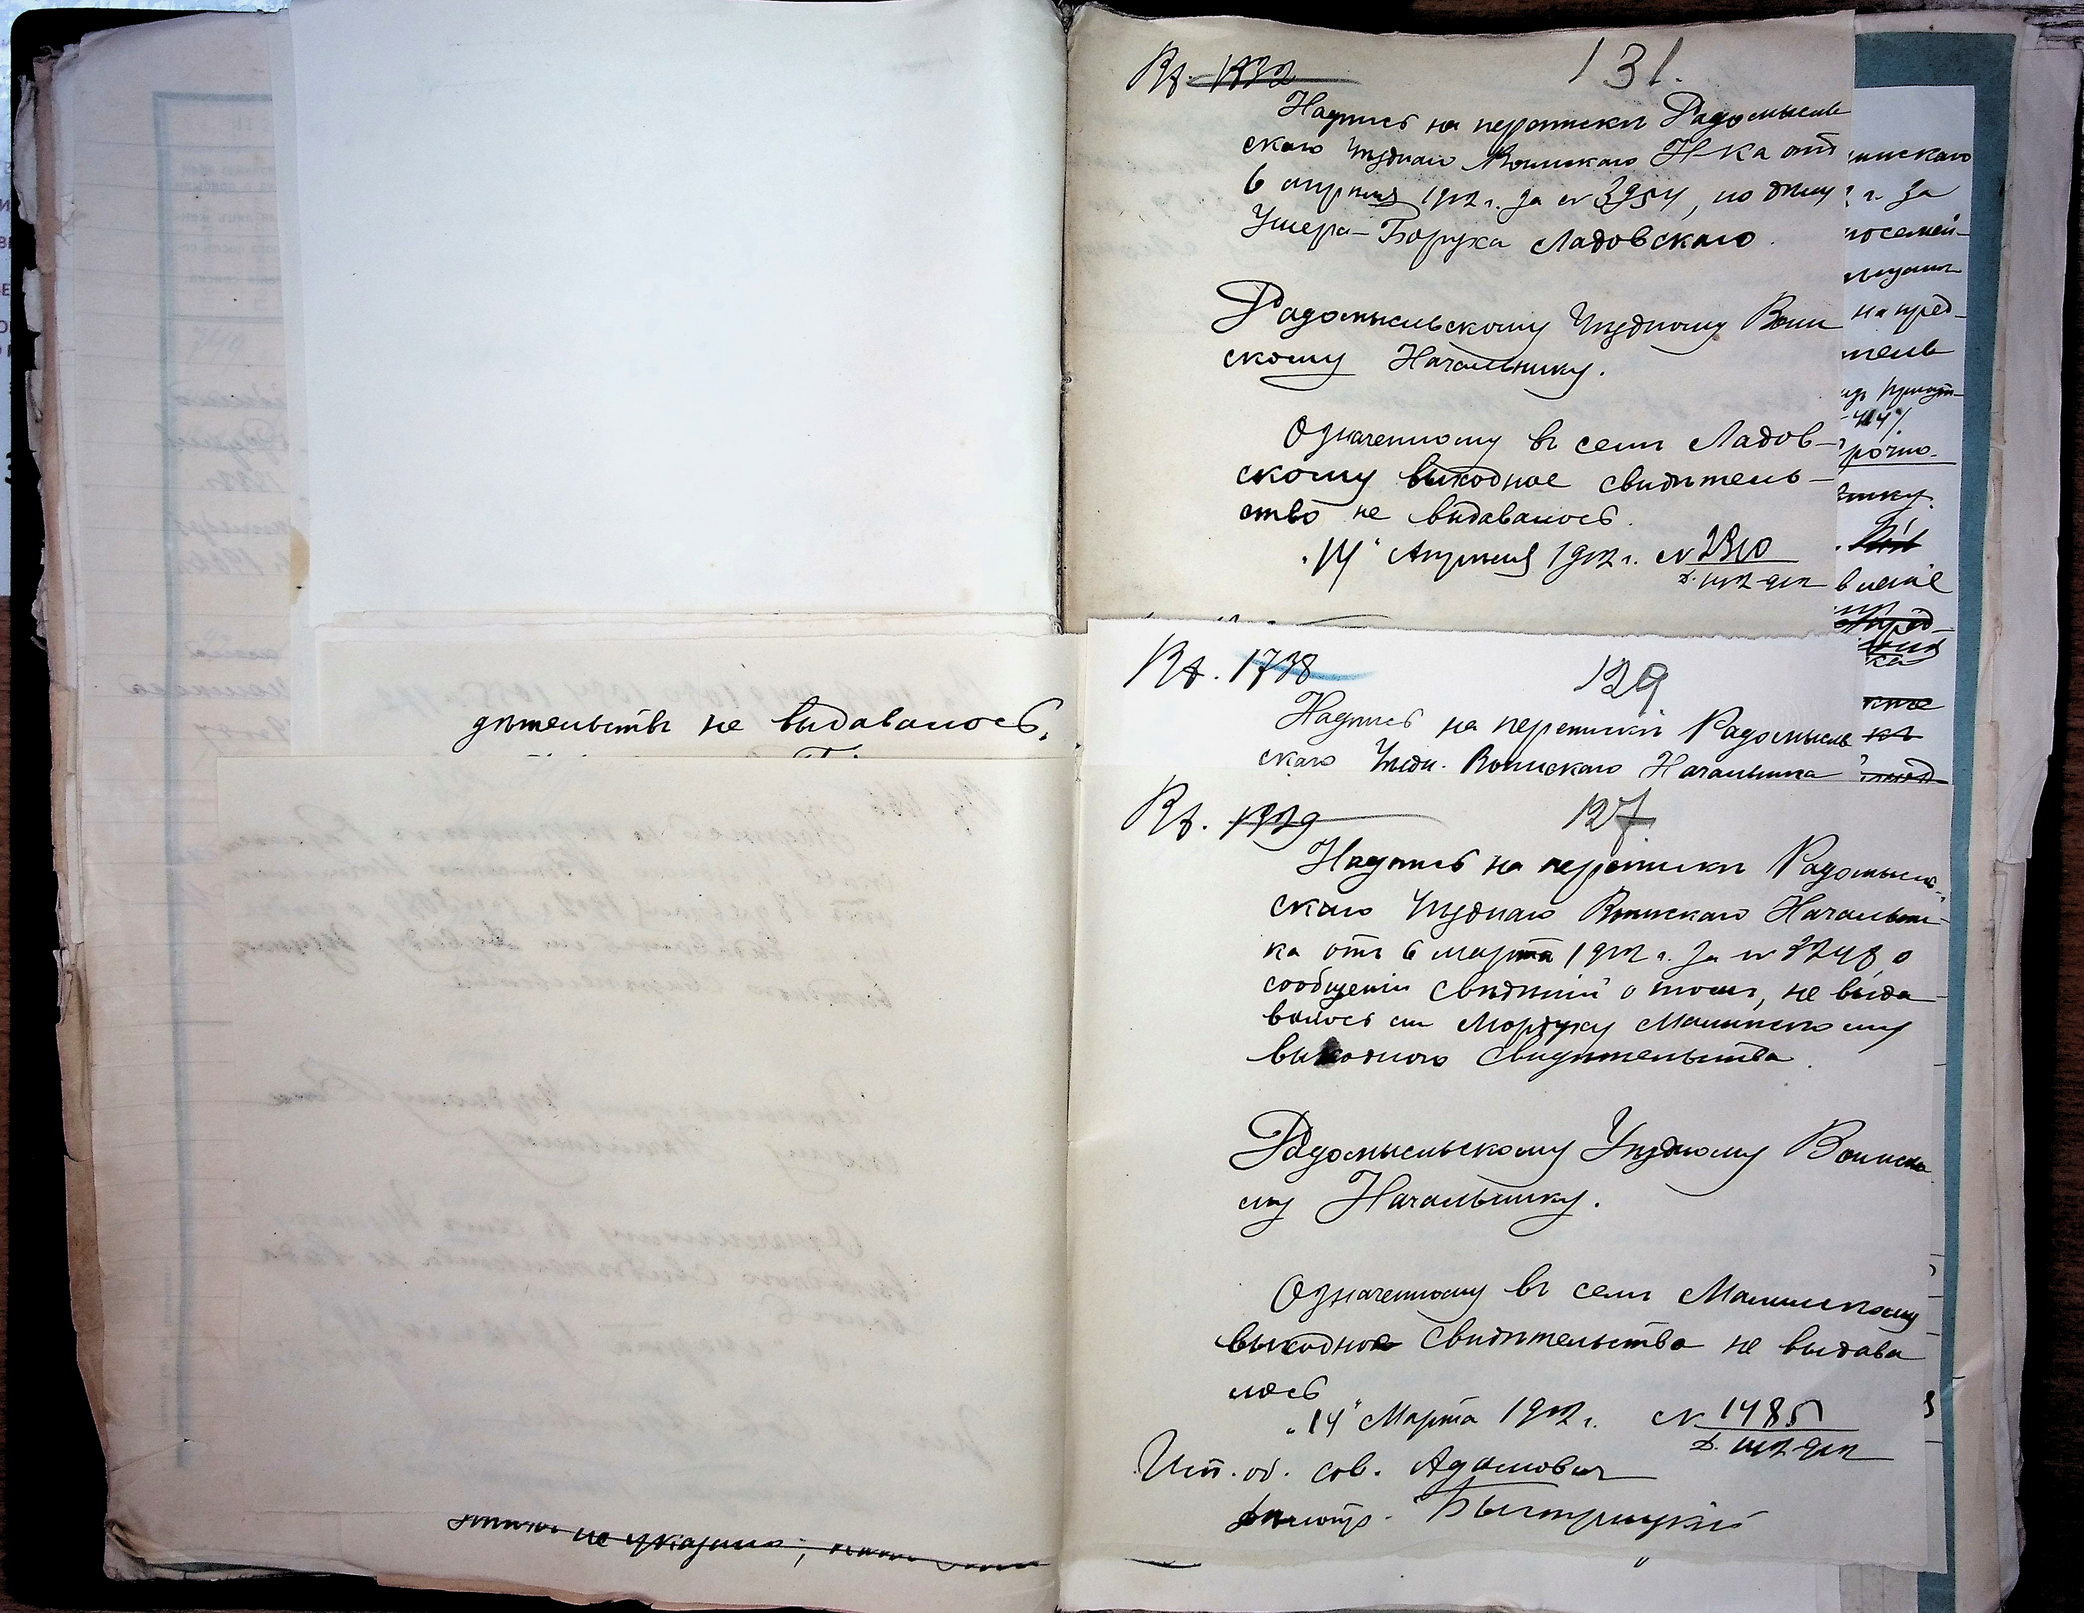 дѣтельствъ не выдавалось.
не указано,
Вх. 1932
131.
Надпись на перепискѣ Радомысль
скаго Уѣзднаго Воинскаго Н-ка отъ
6 апрѣля 1902 г. за № 3954, по дѣлу
Ушера-Боруха Ладовскаго.
Радомысльскому Уѣздному Воин
скому Начальнику.
Означенному въ семъ Ладов-
скому выходное свидѣтель-
ство не выдавалось.
"14" Апрѣля 1902 г. № 2310
инскаго
г. за
посемей-
на пред-
рочно.
Вх. 1738
129
Надпись на перепискѣ Радомысль
скаго Уѣздн. Воинскаго Начальника
Вх. 1329
127.
Надпись на перепискѣ Радомысль-
скаго Уѣзднаго Воинскаго Начальни-
ка отъ 6 марта 1902 г. за № 2248, о
сообщеніи свѣдѣній о томъ, не выда-
валось ли Мордуху Малинскому
выходного свидѣтельства.
Радомысльскому Уѣздному Воинско
му Начальнику.
Означенному въ семъ Малинскому
выходное свидѣтельства не выдава
лось
"14" Марта 1902 г. № 1485
Исп. об. сов. Адамовичъ
Быстрицкій